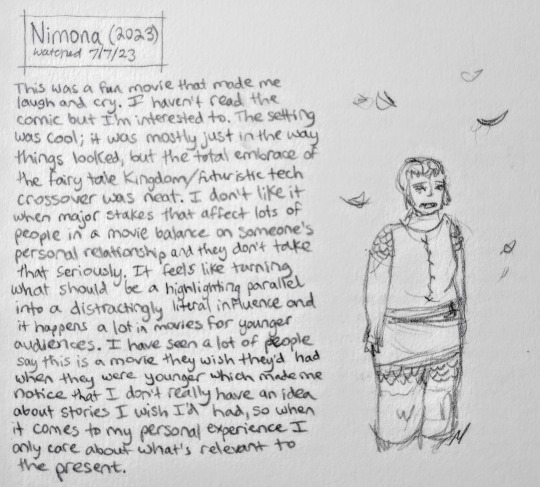 Nimona (2023)
watched 7/7/23
This was a fun movie that made me
laugh and cry. I haven't read the
comic but I'm interested to. The setting
was cool; it was mostly just in the way
things looked, but the total embrace of
the fairy tale kingdom/futuristic tech
crossover was neat. I don't like it
when major stakes that affect lots of
people in a movie balance on someone's
personal relationship and they don't take
that seriously. It feels like turning
what should be a highlighting parallel
into a distractingly literal influence and
it happens a lot in movies for younger
audiences. I have seen a lot of people
say this is a movie they wish they'd had
when they were younger which made me
notice that I don't really have an idea
about stories I wish I'd had, so when
it comes to my personal experience I
only care about what's relevant to
the present.